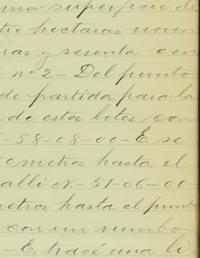 una superficie de
tro hectaras noven
ras y sesenta cen
nº 2 - Del punto
de partida para la
de estos lotes con
- 58 - 08 - 00 - E se
metros hasta el
alli N - 51 - 06 - 00 -
metros hasta el punto
con un rumbo
- E. tracé una li